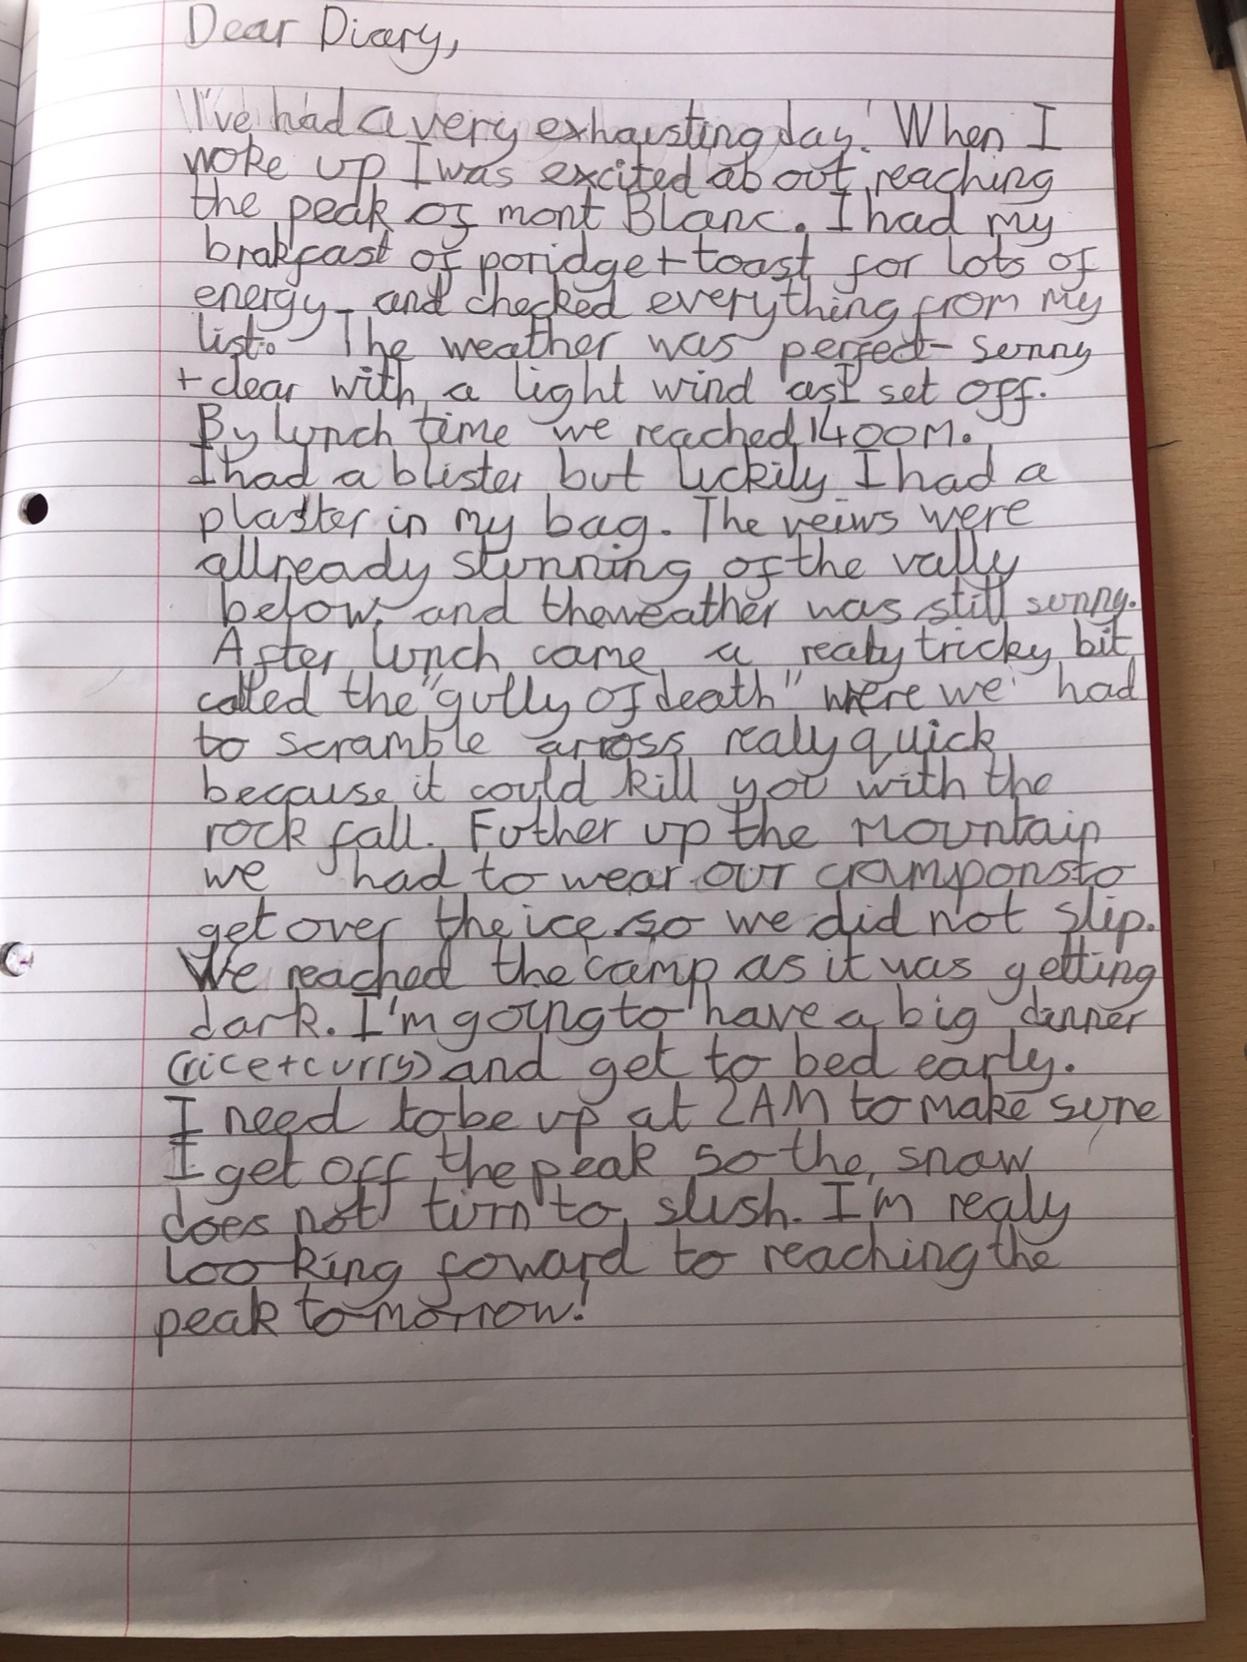 Dear Diary,
I've had a very exhausting day! When I
woke up I was excited about reaching
the peak of mont Blanc. I had my
brakfast of poridge + toast for lots of
energy and checked everything from my
list. The weather was perfect - sunny
+ clear with a light wind as I set off.
By lunch time we reached 1400M.
I had a blister but luckily I had a
plaster in my bag. The veiws were
allready stunning of the vally
below, and the weather was still sunny.
After lunch came a realy tricky bit
called the "gully of death" where we had
to scramble arross realy quick
because it could kill you with the
rock fall. Futher up the mountain
we had to wear our crampons to
get over the ice so we did not slip.
We reached the camp as it was getting
dark. I'm going to have a big dinner
(rice + curry) and get to bed early.
I need to be up at 2AM to make sure
I get off the peak so the snow
does not turn to slush. I'm realy
looking foward to reaching the
peak tomorrow!